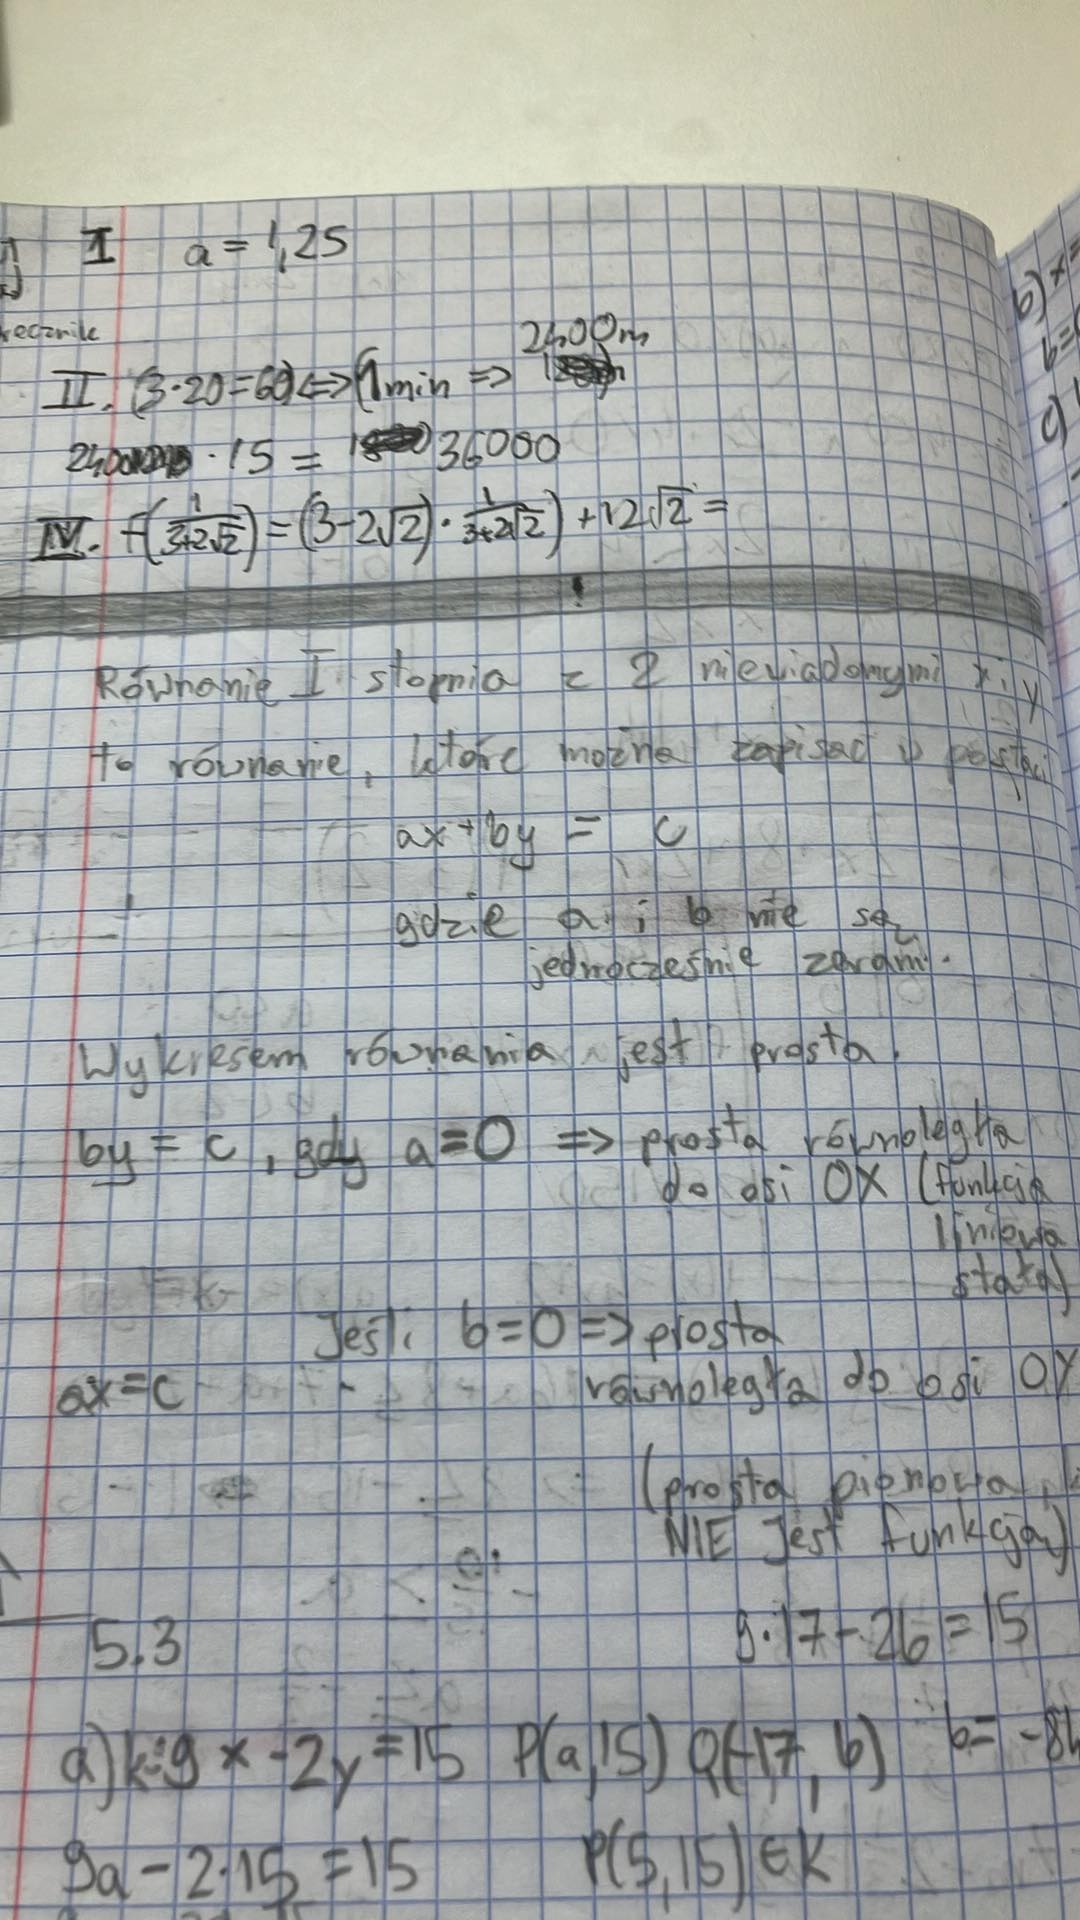 I a = 1,25
ręcznik
2400m
II. (3·20=60) <=> (1min =>
2400 · 15 = 36000
IV. f(1/(3+2√2)) = (3-2√2) · 1/(3+2√2)) + 12√2 =
Równanie I stopnia z 2 niewiadomymi x i y
to równanie, które można zapisać w postaci
ax + by = c
gdzie a i b nie są
jednocześnie zerami.
Wykresem równania jest prosta.
by = c, gdy a = 0 => prosta równoległa
do osi OX (funkcja
liniowa
stała)
Jeśli b = 0 => prosta
ax = c równoległa do osi OY
(prosta pionowa,
NIE jest funkcją)
5.3 9·17 - 2b = 15
a) k: 9x - 2y = 15 P(a, 15) Q(-17, b) b = -84
9a - 2·15 = 15 P(5, 15) ∈ k
b) x=
b=
c)